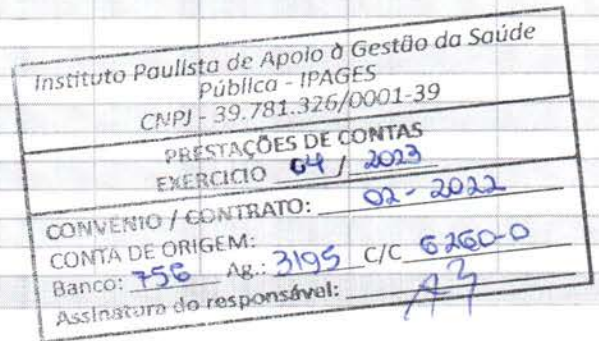 Instituto Paulista de Apoio à Gestão da Saúde
Pública - IPAGES
CNPJ - 39.781.326/0001-39
PRESTAÇÕES DE CONTAS
EXERCICIO 04 / 2023
CONVENIO / CONTRATO: 02 - 2022
CONTA DE ORIGEM:
Banco: 756 Ag.: 3195 C/C 6260-0
Assinatura do responsável: